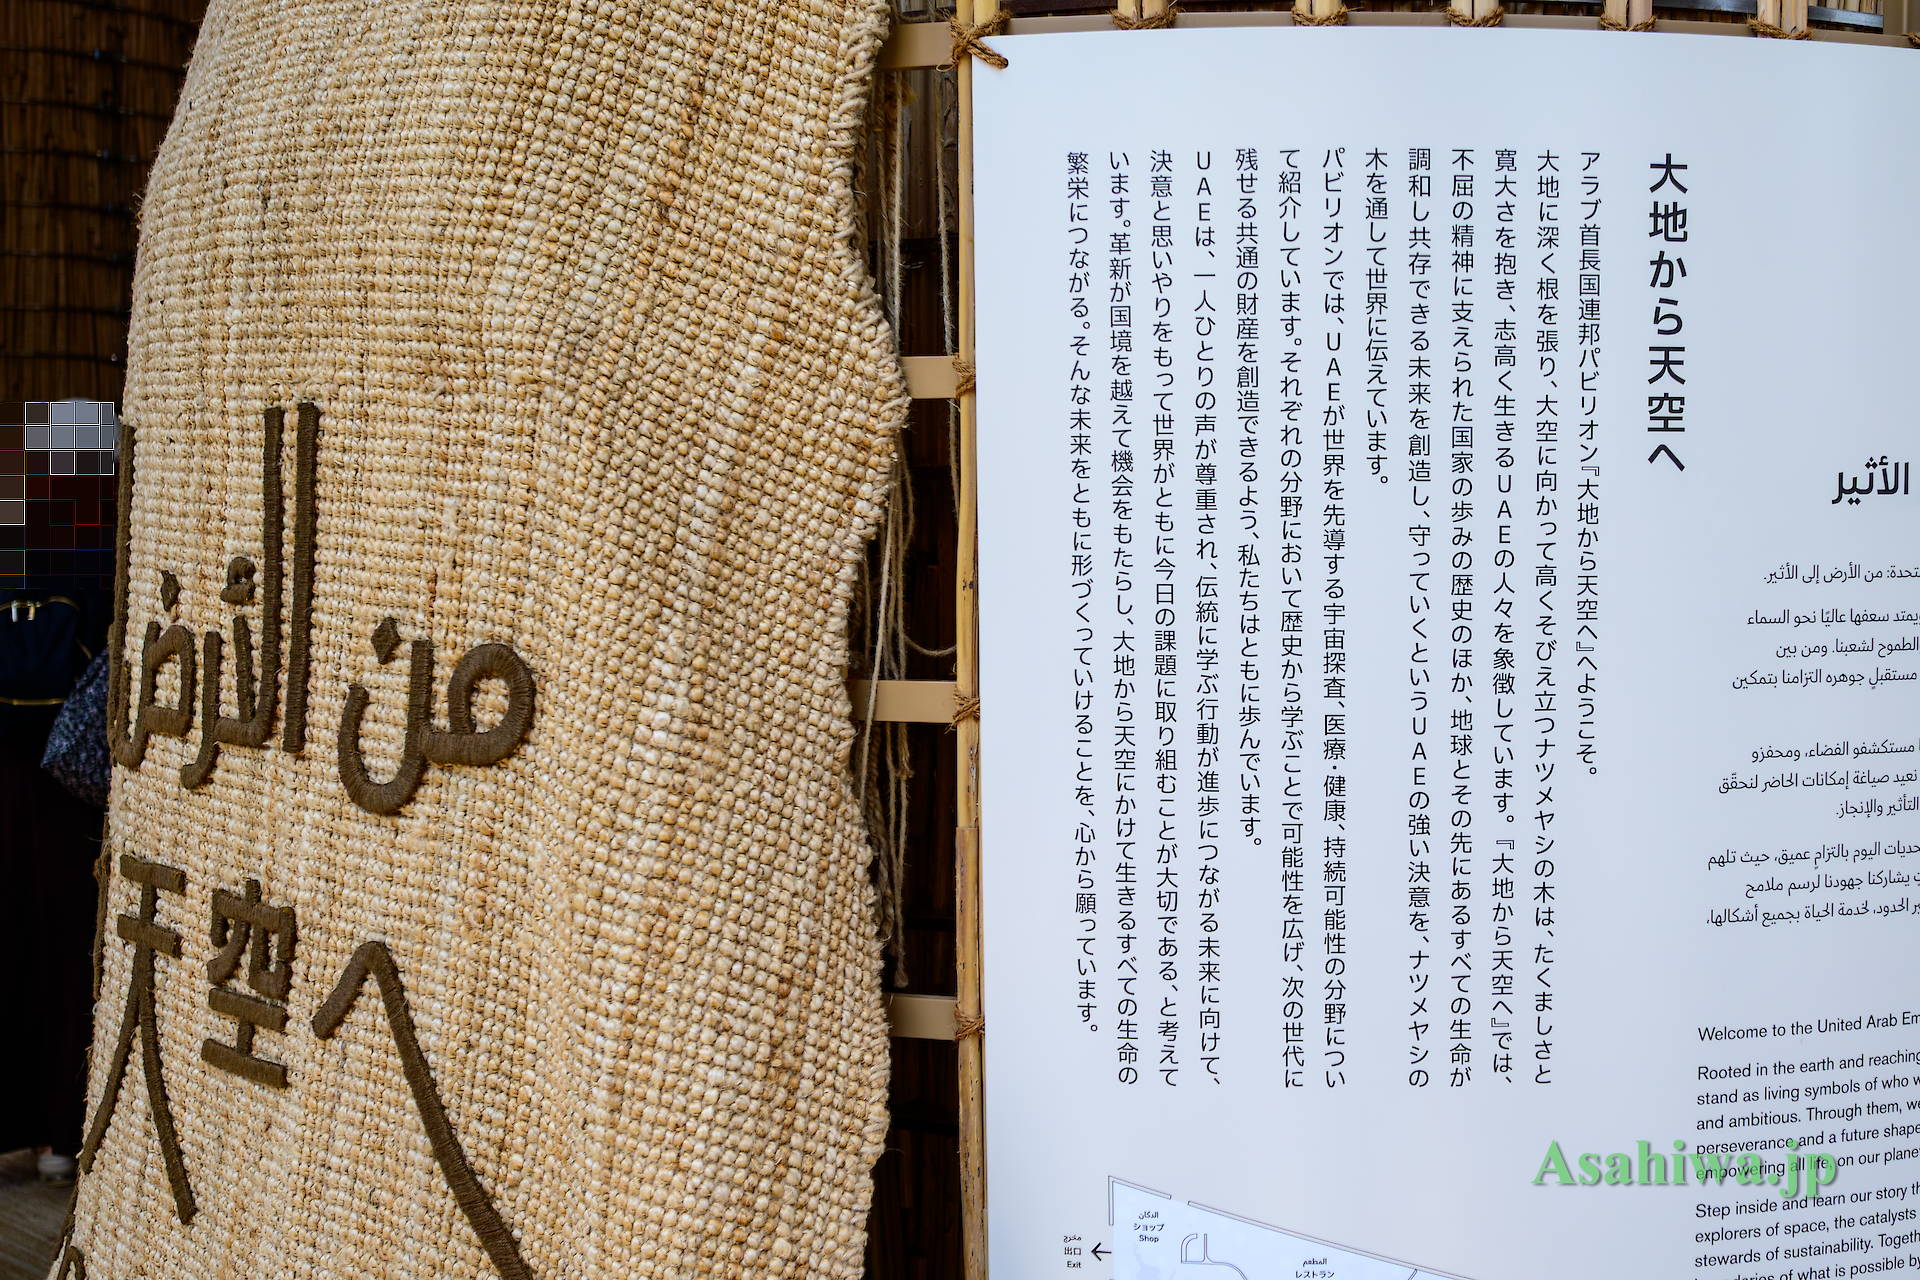 من الأرض
天空へ
大地から天空へ
アラブ首長国連邦パビリオン『大地から天空へ』へようこそ。
大地に深く根を張り、大空に向かって高くそびえ立つナツメヤシの木は、たくましさと
寛大さを抱き、志高く生きるUAEの人々を象徴しています。『大地から天空へ』では、
不屈の精神に支えられた国家の歩みの歴史のほか、地球とその先にあるすべての生命が
調和し共存できる未来を創造し、守っていくというUAEの強い決意を、ナツメヤシの
木を通して世界に伝えています。
パビリオンでは、UAEが世界を先導する宇宙探査、医療・健康、持続可能性の分野につい
て紹介しています。それぞれの分野において歴史から学ぶことで可能性を広げ、次の世代に
残せる共通の財産を創造できるよう、私たちはともに歩んでいます。
UAEは、一人ひとりの声が尊重され、伝統に学ぶ行動が進歩につながる未来に向けて、
決意と思いやりをもって世界がともに今日の課題に取り組むことが大切である、と考えて
います。革新が国境を越えて機会をもたらし、大地から天空にかけて生きるすべての生命の
繁栄につながる。そんな未来をともに形づくっていけることを、心から願っています。
الأثير
تحدة: من الأرض إلى الأثير.
يمتد سعفها عاليًا نحو السماء
الطموح لشعبنا. ومن بين
مستقبلٍ جوهره التزامنا بتمكين
مستكشفو الفضاء، ومحفزو
نعيد صياغة إمكانات الحاضر لنحقّق
التأثير والإنجاز.
حديات اليوم بالتزامٍ عميق، حيث تلهم
يشاركنا جهودنا لرسم ملامح
الحدود، لخدمة الحياة بجميع أشكالها،
Welcome to the United Arab Em
Rooted in the earth and reaching
stand as living symbols of who w
and ambitious. Through them, we
perseverance and a future shape
empowering all life, on our plane
Step inside and learn our story th
explorers of space, the catalysts
stewards of sustainability. Togeth
of what is possible by
الدكان
ショップ
Shop
مخرج
出口
Exit
المطعم
レストラン
Asahiwa.jp